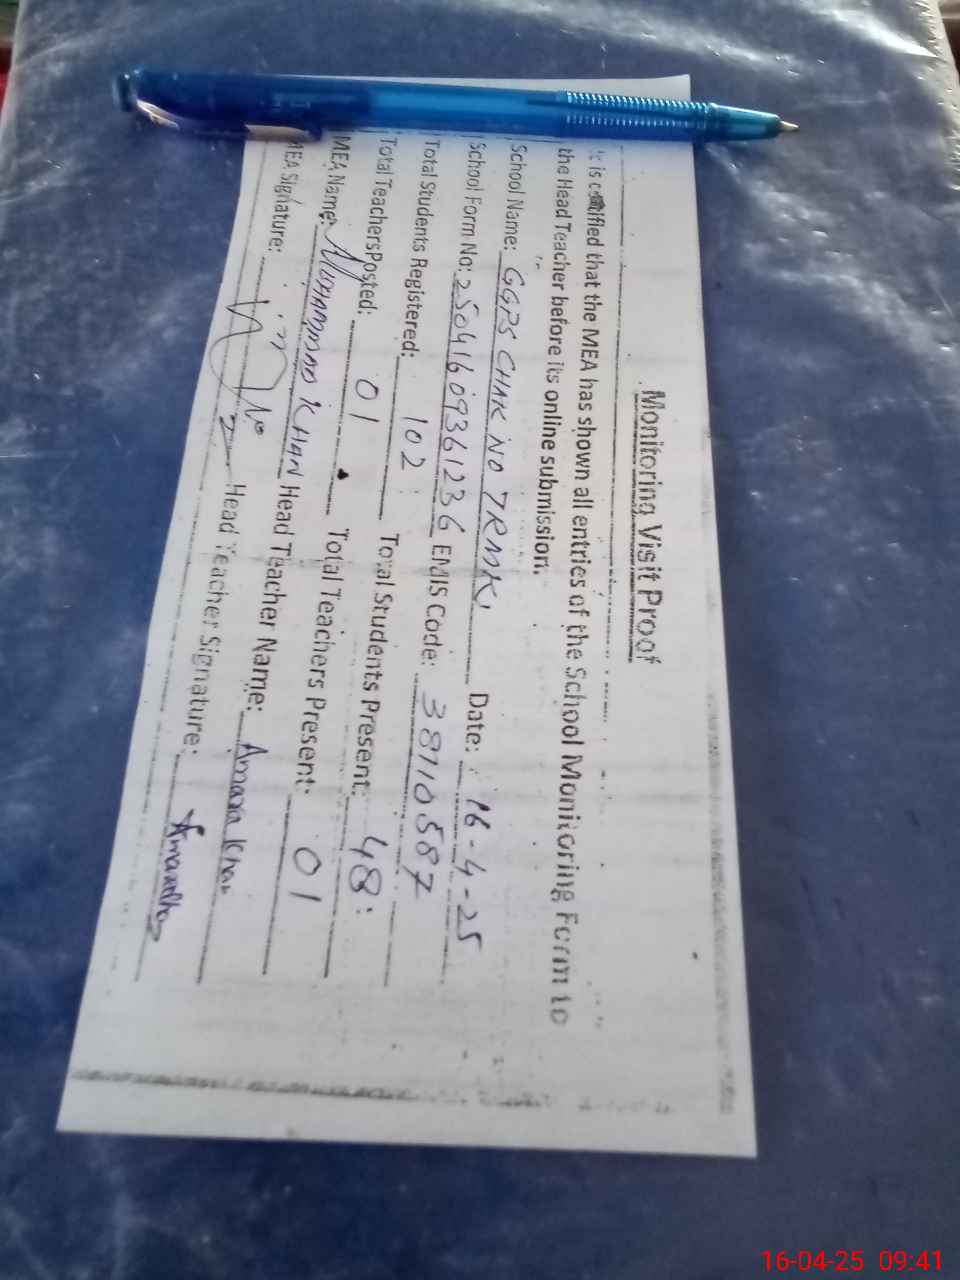 Monitoring Visit Proof
It is certified that the MEA has shown all entries of the School Monitoring Form to
the Head Teacher before its online submission.
School Name: GGPS CHAK NO 7RMK Date: 16-4-25
School Form No: 25041609361236 EMIS Code: 38710587
Total Students Registered: 102 Total Students Present: 48
Total Teachers Posted: 01 Total Teachers Present: 01
MEA Name: MUHAMMAD KHAN Head Teacher Name: Amara Khan
MEA Signature: Head Teacher Signature:
16-04-25 09:41